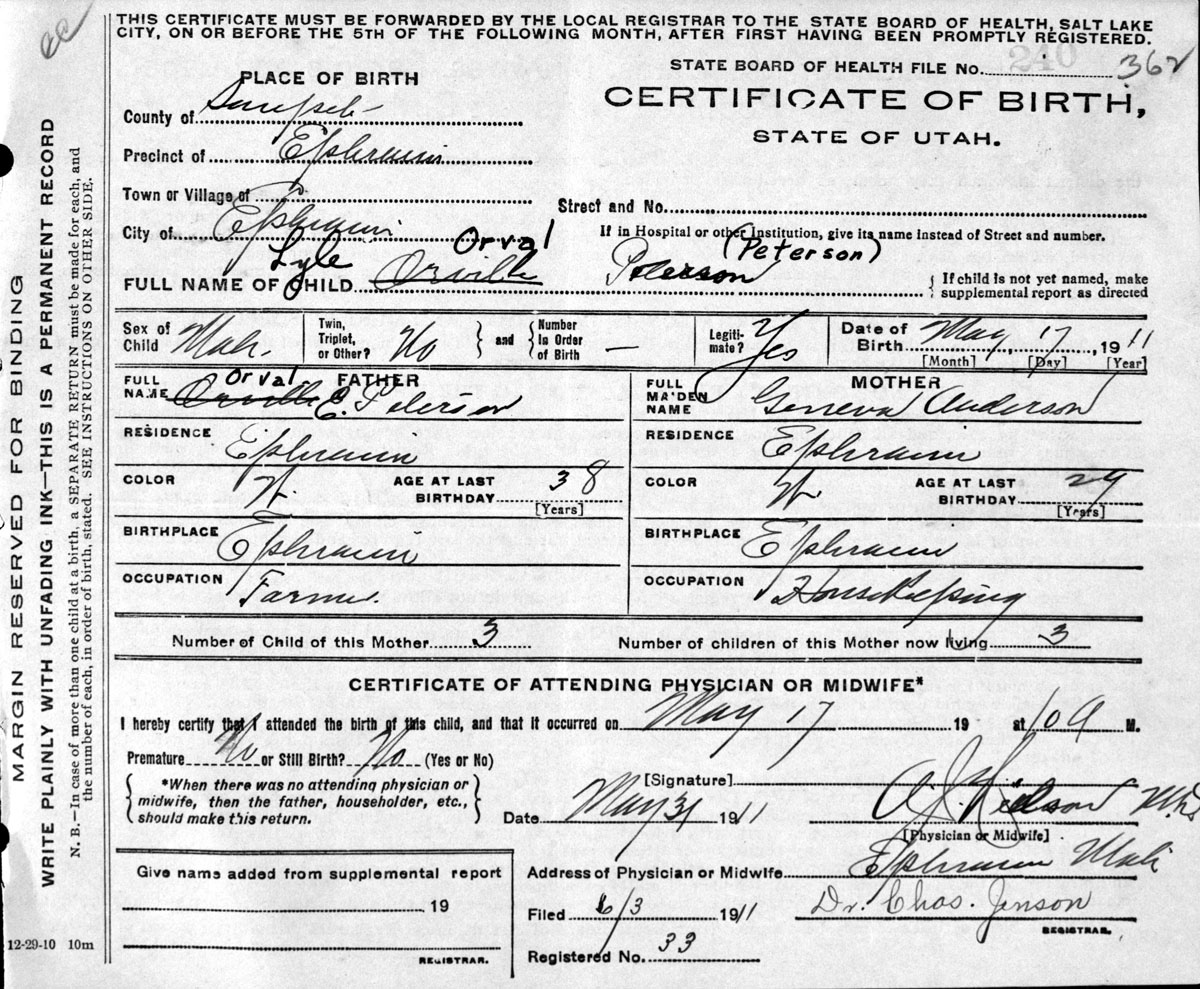 THIS CERTIFICATE MUST BE FORWARDED BY THE LOCAL REGISTRAR TO THE STATE BOARD OF HEALTH, SALT LAKE
CITY, ON OR BEFORE THE 5TH OF THE FOLLOWING MONTH, AFTER FIRST HAVING BEEN PROMPTLY REGISTERED.
240
STATE BOARD OF HEALTH FILE No. 362
PLACE OF BIRTH
CERTIFICATE OF BIRTH,
STATE OF UTAH.
County of
Precinct of Ephraim
Town or Village of
Street and No.
City of Ephraim
If in Hospital or other Institution, give its name instead of Street and number.
Lyle Orval (Peterson)
FULL NAME OF CHILD Orville Peterson
If child is not yet named, make
supplemental report as directed
Sex of Child Male. Twin, Triplet, or Other? No and Number in Order of Birth — Legiti-mate? Yes Date of Birth May, 17, 1911
[Month] [Day] [Year]
FATHER
FULL NAME Orval Orville E. Peterson
MOTHER
FULL MAIDEN NAME Geneva Anderson
RESIDENCE Ephraim
RESIDENCE Ephraim
COLOR W AGE AT LAST BIRTHDAY 38 [Years]
COLOR W. AGE AT LAST BIRTHDAY 29 [Years]
BIRTHPLACE Ephraim
BIRTHPLACE Ephraim
OCCUPATION Farmer.
OCCUPATION Housekeeping
Number of Child of this Mother 3
Number of children of this Mother now living 3
CERTIFICATE OF ATTENDING PHYSICIAN OR MIDWIFE*
I hereby certify that I attended the birth of this child, and that it occurred on May 17 19 at 10 a M.
Premature No or Still Birth? No (Yes or No)
*When there was no attending physician or
midwife, then the father, householder, etc.,
should make this return.
[Signature]
Date May 31 1911
[Physician or Midwife]
Give name added from supplemental report
19
REGISTRAR.
Address of Physician or Midwife Ephraim Utah
Filed 6/3 1911 Dr. Chas. Jenson
REGISTRAR.
Registered No. 33
12-29-10 10m
MARGIN RESERVED FOR BINDING
WRITE PLAINLY WITH UNFADING INK—THIS IS A PERMANENT RECORD
N. B.—In case of more than one child at a birth, a SEPARATE RETURN must be made for each, and
the number of each, in order of birth, stated. SEE INSTRUCTIONS ON OTHER SIDE.